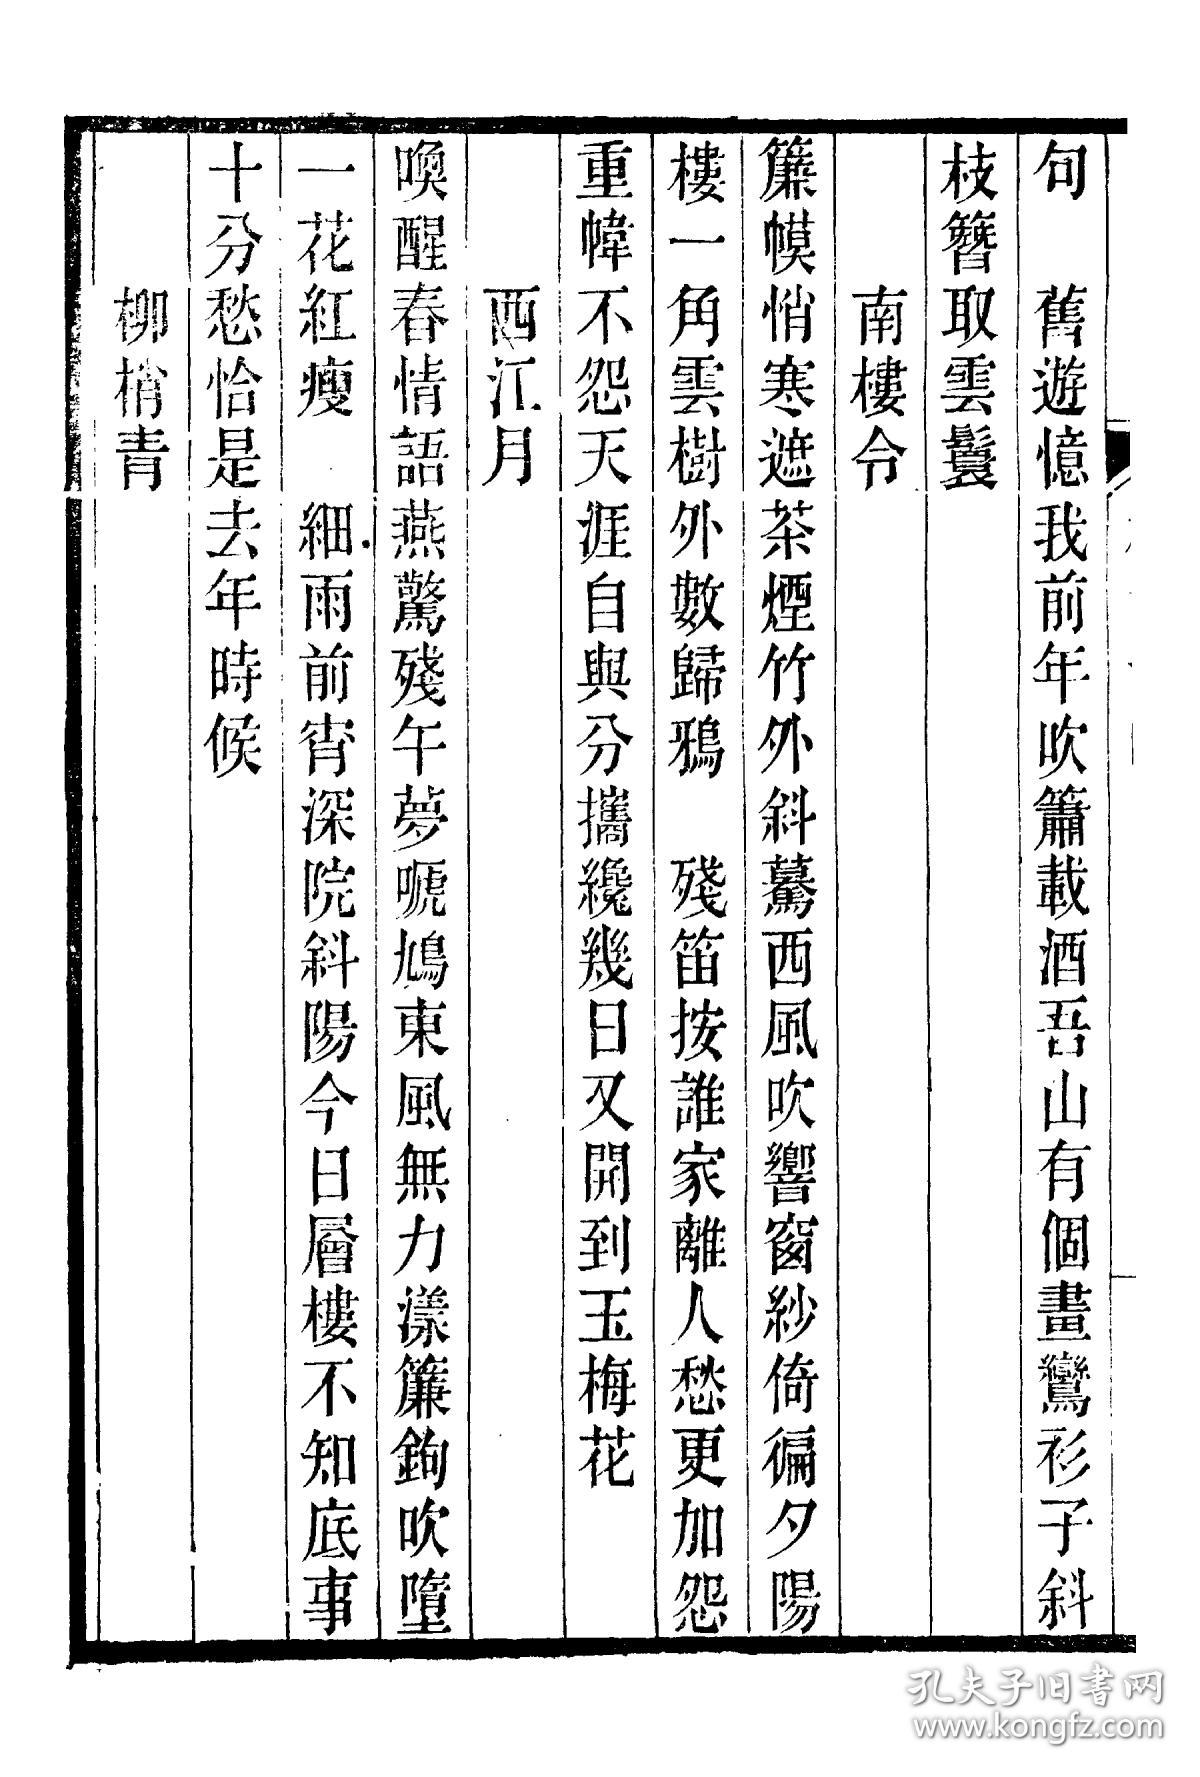 句　舊遊憶我前年吹簫載酒吾山有個畫鸞衫子斜
枝簪取雲鬟
南樓令
簾幙悄寒遮茶煙竹外斜驀西風吹響窗紗倚徧夕陽
樓一角雲樹外數歸鴉　殘笛按誰家離人愁更加怨
重幃不怨天涯自與分攜纔幾日又開到玉梅花
西江月
喚醒春情語燕驚殘午夢嗁鳩東風無力漾簾鉤吹墮
一花紅瘦　細雨前宵深院斜陽今日層樓不知底事
十分愁恰是去年時候
柳梢青
孔夫子旧书网
www.kongfz.com